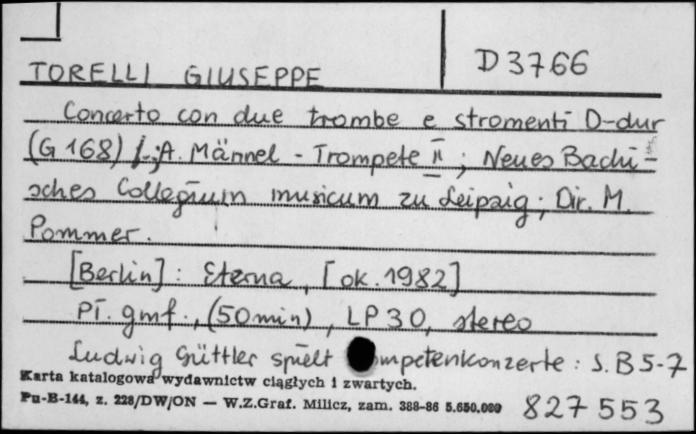 D 3766
TORELLI GIUSEPPE
Concerto con due trombe e stromenti D-dur
(G 168) [-; A. Männel - Trompete II ; Neues Bachi-
sches Collegium musicum zu Leipzig ; Dir. M.
Pommer.
[Berlin] : Eterna, [ok. 1982]
Pł. gmf., (50 min), LP 30, stereo
Ludwig Güttler spielt mpetenkonzerte : S. B 5-7
Karta katalogowa wydawnictw ciągłych i zwartych.
Pu-B-144, z. 228/DW/ON — W.Z.Graf. Milicz, zam. 388-86 5.650.000
827 553